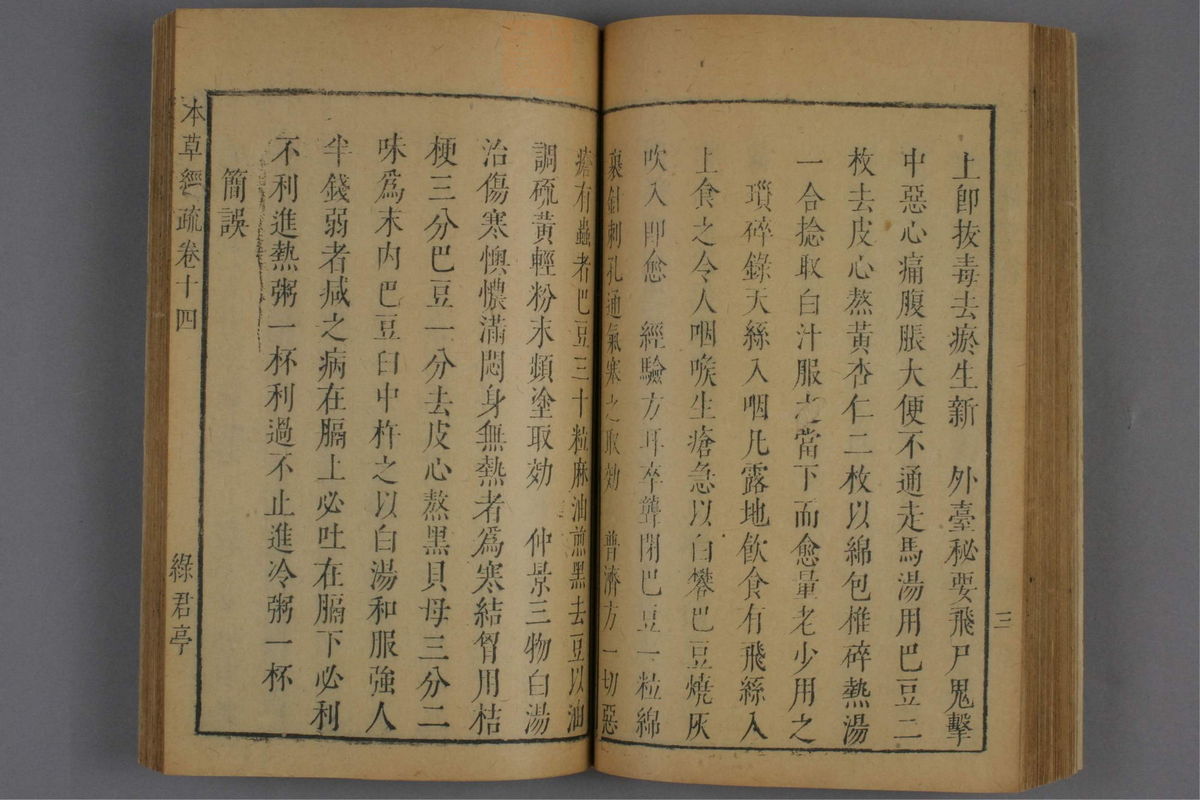 三
上卽拔毒去瘀生新　外臺秘要飛尸鬼擊
中惡心痛腹脹大便不通走馬湯用巴豆二
枚去皮心熬黃杏仁二枚以綿包椎碎熱湯
一合捻取白汁服之當下而愈量老少用之
瑣碎錄天絲入咽凡露地飮食有飛絲入
上食之令人咽喉生瘡急以白礬巴豆燒灰
吹入卽愈　經驗方耳卒聾閉巴豆一粒綿
裹針刺孔通氣塞之取効　普濟方一切惡
瘡有蟲者巴豆三十粒麻油煎黑去豆以油
調硫黃輕粉末頻塗取効　仲景三物白湯
治傷寒懊憹滿悶身無熱者爲寒結胷用桔
梗三分巴豆一分去皮心熬黑貝母三分二
味爲末內巴豆臼中杵之以白湯和服強人
半錢弱者減之病在膈上必吐在膈下必利
不利進熱粥一杯利過不止進冷粥一杯
簡誤
本草經疏卷十四
綠君亭